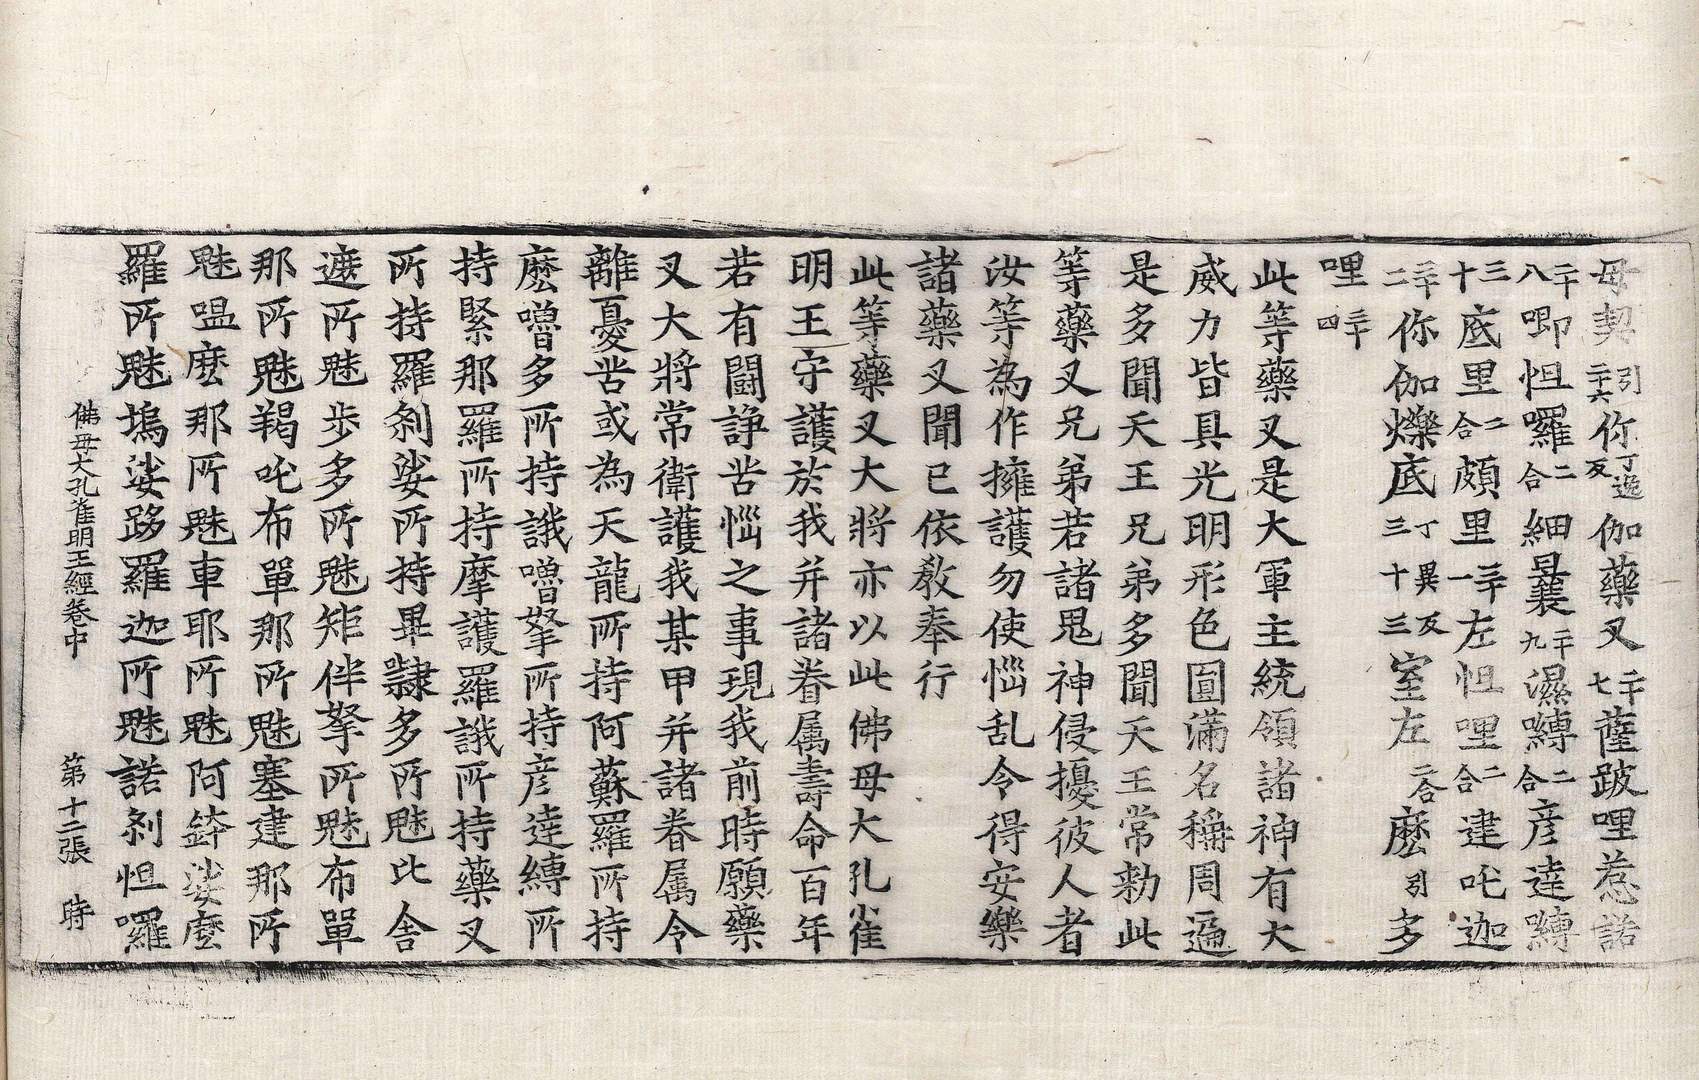 母契引二十六你丁逸反伽藥叉二十七薩跛哩惹諾
二十八唧怛囉二合細曩二十九濕嚩二合彦達嚩
三十底里二合頗里三十一左怛哩二合建吒迦
三十二你伽爍底丁異反三十三室左二合麽引多
哩三十四
此等藥叉是大軍主統領諸神有大
威力皆具光明形色圓滿名稱周遍
是多聞天王兄弟多聞天王常勑此
等藥叉兄弟若諸鬼神侵擾彼人者
汝等為作擁護勿使惱乱令得安樂
諸藥叉聞已依教奉行
此等藥叉大將亦以此佛母大孔雀
明王守護於我并諸眷属壽命百年
若有鬪諍苦惱之事現我前時願藥
叉大將常衛護我某甲并諸眷属令
離憂苦或為天龍所持阿蘇羅所持
麽嚕多所持誐嚕拏所持彦達嚩所
持緊那羅所持摩護羅誐所持藥叉
所持羅剎娑所持畢隸多所魅比舍
遮所魅步多所魅矩伴拏所魅布單
那所魅羯吒布單那所魅塞建那所
魅嗢麽那所魅車耶所魅阿鉢娑麽
羅所魅塢娑跢羅迦所魅諾剎怛囉
佛母大孔雀明王經卷中 第十二張 時